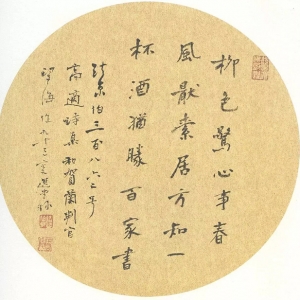 柳色驚心事春
風厭索居方知一
杯酒猶勝百家書
伯三八六二
高適詩集和賀蘭判官
望海作